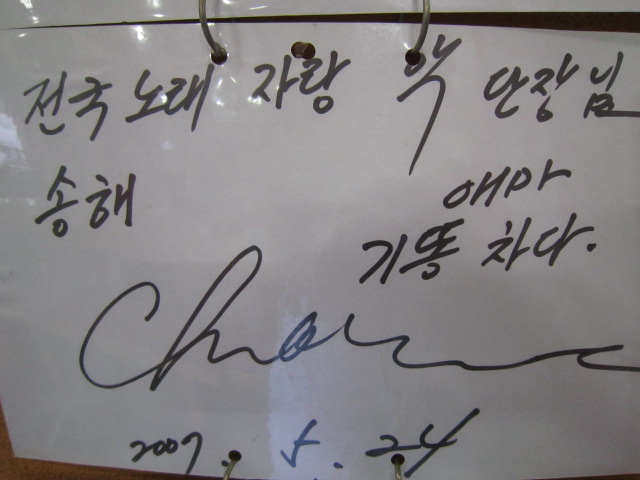 전국 노래 자랑 악 단장님
송해
애마
기똥 차다.
2007. 5. 24